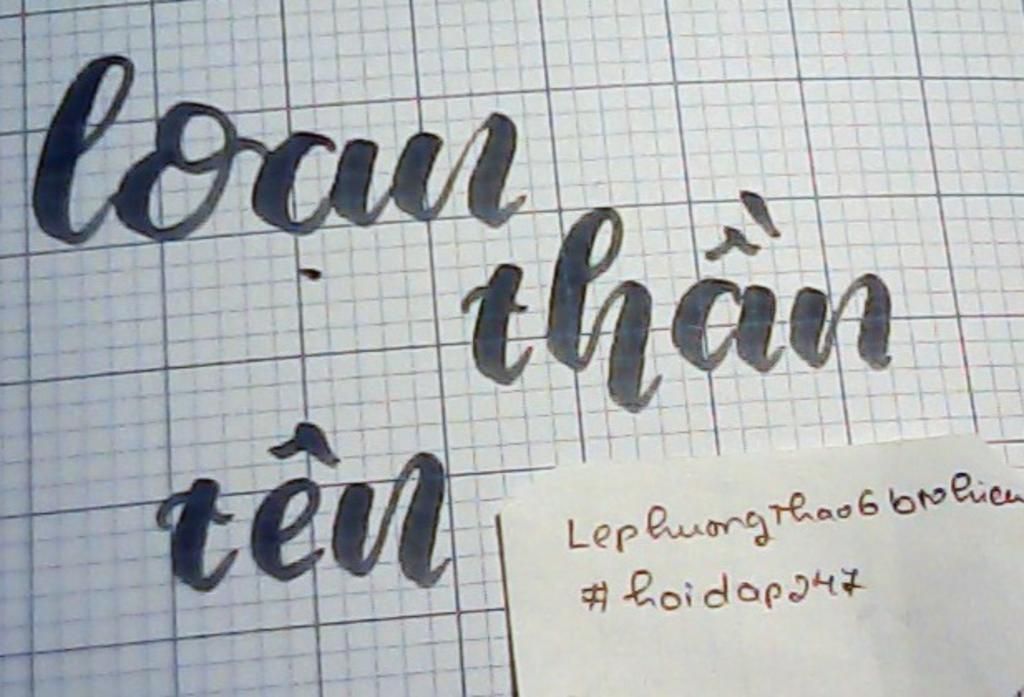 loạn
thần
tên
LephuongThao6brohieu
#hoidap247